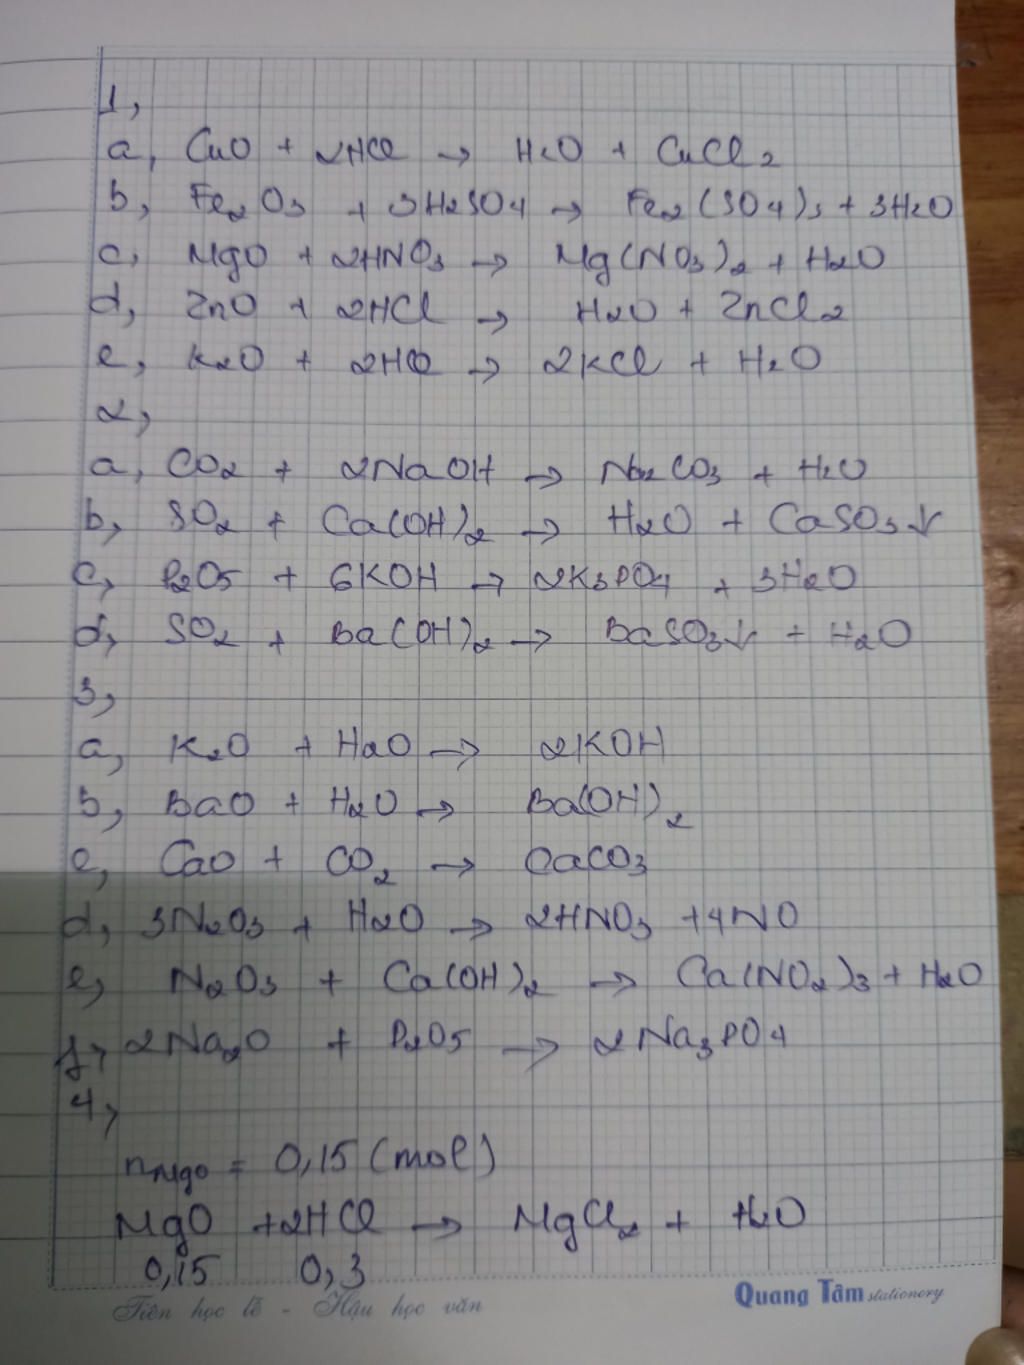 1,
a, CuO + 2HCl → H2O + CuCl2
b, Fe2O3 + 3H2SO4 → Fe2(SO4)3 + 3H2O
c, MgO + 2HNO3 → Mg(NO3)2 + H2O
d, ZnO + 2HCl → H2O + ZnCl2
e, K2O + 2HCl → 2KCl + H2O
2,
a, CO2 + 2NaOH → Na2CO3 + H2O
b, SO2 + Ca(OH)2 → H2O + CaSO3↓
c, P2O5 + 6KOH → 2K3PO4 + 3H2O
d, SO2 + Ba(OH)2 → BaSO3↓ + H2O
3,
a, K2O + H2O → 2KOH
b, BaO + H2O → Ba(OH)2
c, CaO + CO2 → CaCO3
d, 3N2O3 + H2O → 2HNO3 + 4NO
e, N2O3 + Ca(OH)2 → Ca(NO2)3 + H2O
f, 2Na2O + P2O5 → 2Na3PO4
4,
nMgO = 0,15 (mol)
MgO + 2HCl → MgCl2 + H2O
0,15 0,3
Tiên học lễ - Hậu học văn
Quang Tâm stationery